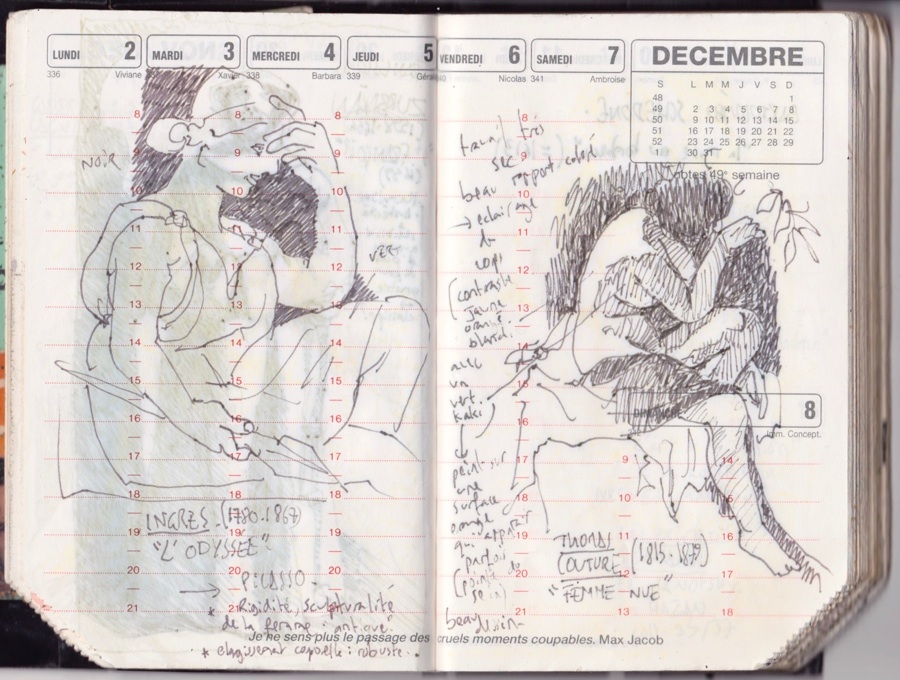 LUNDI 2
MARDI 3
MERCREDI 4
JEUDI 5
336 Viviane
Xavier
338 Barbara
339
8
9
10
11
12
13
14
15
16
17
18
19
20
21
NOIR
VERT
INGRES. (1780.1867)
"L'ODYSSEE"
→ PICASSO
* Rigidité, sculpturalité
de la femme "antique"
* elargissement corporelle : robuste.
Je ne sens plus le passage des cruels moments coupables. Max Jacob
VENDREDI 6
SAMEDI 7
Nicolas
341 Ambroise
DECEMBRE
S L M M J V S D
48 1
49 2 3 4 5 6 7 8
50 9 10 11 12 13 14 15
51 16 17 18 19 20 21 22
52 23 24 25 26 27 28 29
1 30 31
Notes 49e semaine
travail très
sec
beau rapport coloré
→ eclairage
du
corps
(contraste
jaune
orangé
blanc.
avec
un
vert
kaki
peint sur
une
surface
orange
qui apparait
parfois
beau
dessin
8
9
10
11
12
13
14
15
16
17
18
19
20
21
DIMANCHE 8
Imm. Concept.
9
10
11
12
13
14
15
16
17
18
THOMAS
COUTURE (1815.1879)
"FEMME NUE"